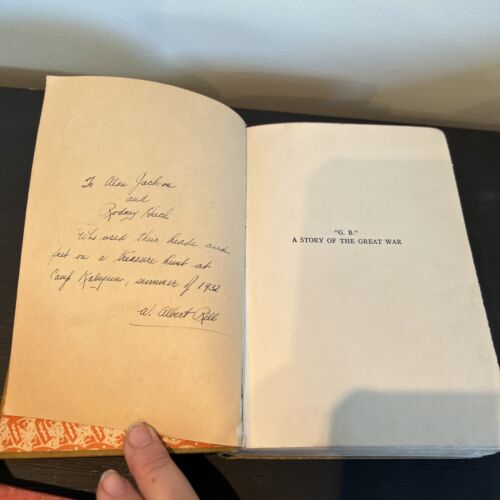 To Alan Jackson
and
Rodney
"Who used their heads and
put on a treasure hunt at
Camp Kabyun, summer of 1932
W. Albert Rill
"G. B."
A STORY OF THE GREAT WAR